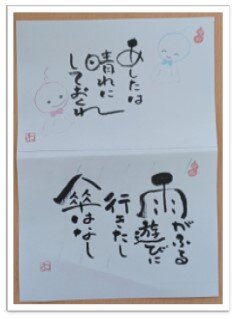 あしたは
晴れに
しておくれ
雨がふる
遊びに
行きたし
傘はなし